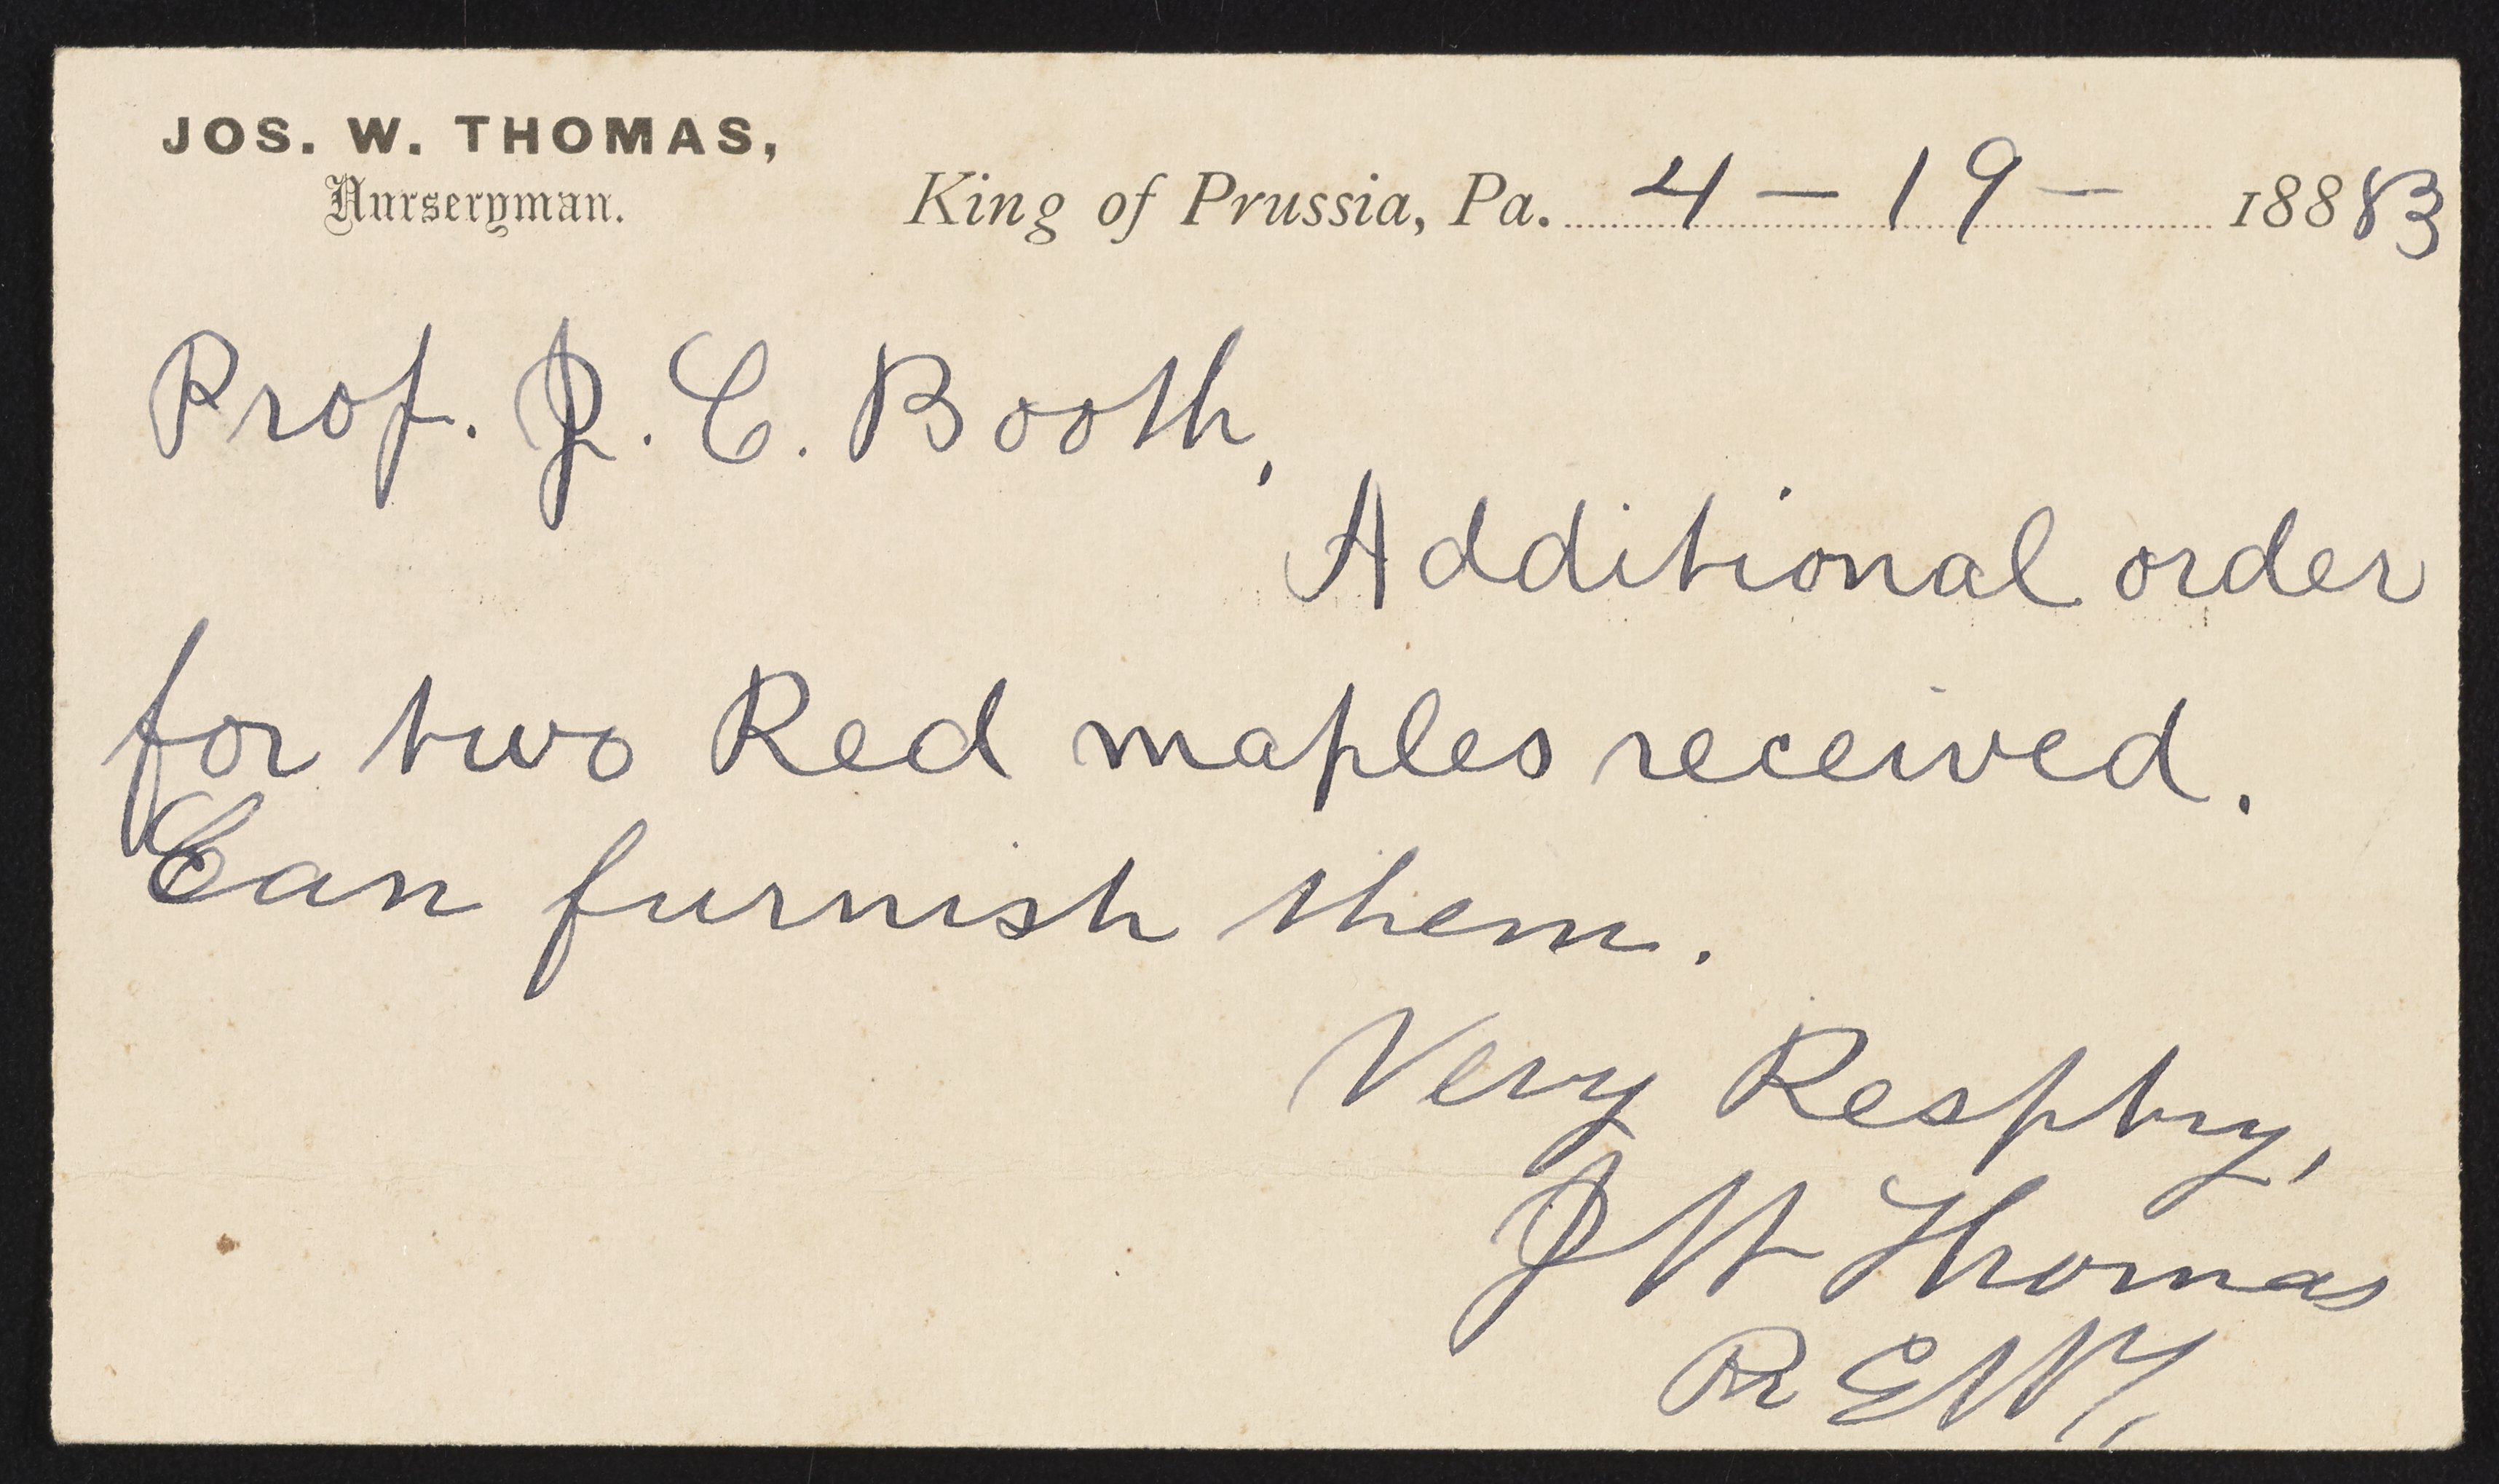 JOS. W. THOMAS,
Nurseryman.
King of Prussia, Pa. 4 - 19 - 18883
Prof. J. C. Booth,
Additional order
for two Red maples received.
Can furnish them.
Very Respty,
J W Thomas